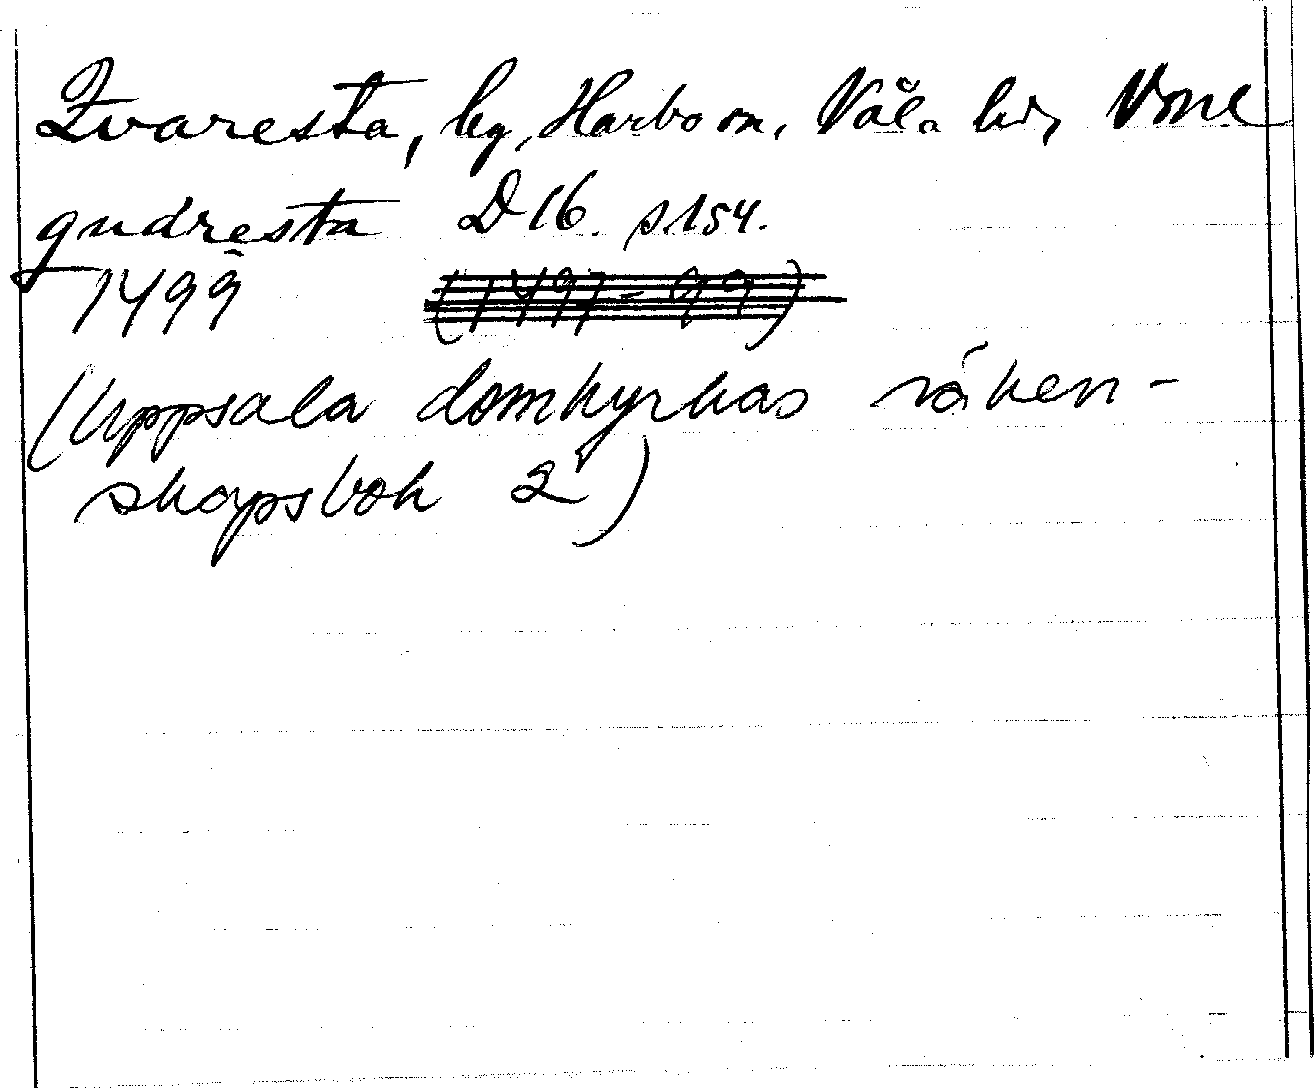 Ivaresta, by, Harbo sn, Våla hd, Vml
gudresta D16. s.154.
1499 (1497-99)
(Uppsala domkyrkas räken-
skapsbok 2)